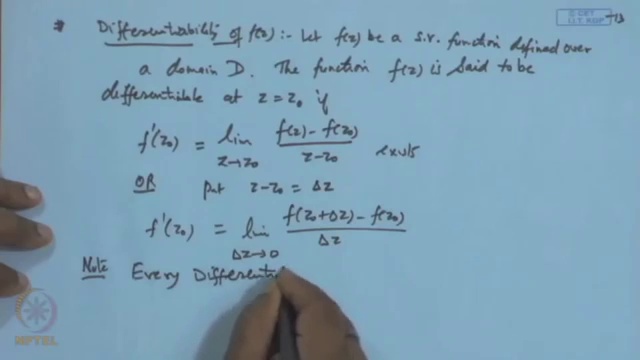 © CET
I.I.T. KGP
-13
* Differentiability of f(z) :- Let f(z) be a s.v. function defined over
a domain D. The function f(z) is said to be
differentiable at z = z₀ if
f'(z₀) = lim z→z₀ f(z) - f(z₀) / z - z₀ exists
OR put z - z₀ = Δz
f'(z₀) = lim Δz→0 f(z₀+Δz) - f(z₀) / Δz
Note Every Differenti
NPTEL